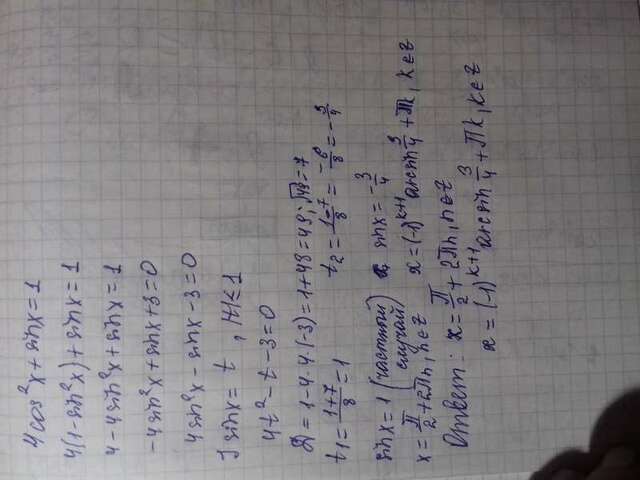 4cos²x + sinx = 1
4(1-sin²x) + sinx = 1
4 - 4sin²x + sinx = 1
-4sin²x + sinx + 3 = 0
4sin²x - sinx - 3 = 0
] sinx = t , |t| ≤ 1
4t² - t - 3 = 0
D = 1 - 4·4·(-3) = 1 + 48 = 49; √49 = 7
t₁ = (1+7)/8 = 1 t₂ = (1-7)/8 = -6/8 = -3/4
sinx = 1 (частный случай) sinx = -3/4
x = П/2 + 2Пn, n∈Z x = (-1)^(k+1) arcsin 3/4 + Пk, k∈Z
Ответ: x = П/2 + 2Пn, n∈Z
x = (-1)^(k+1) arcsin 3/4 + Пk, k∈Z